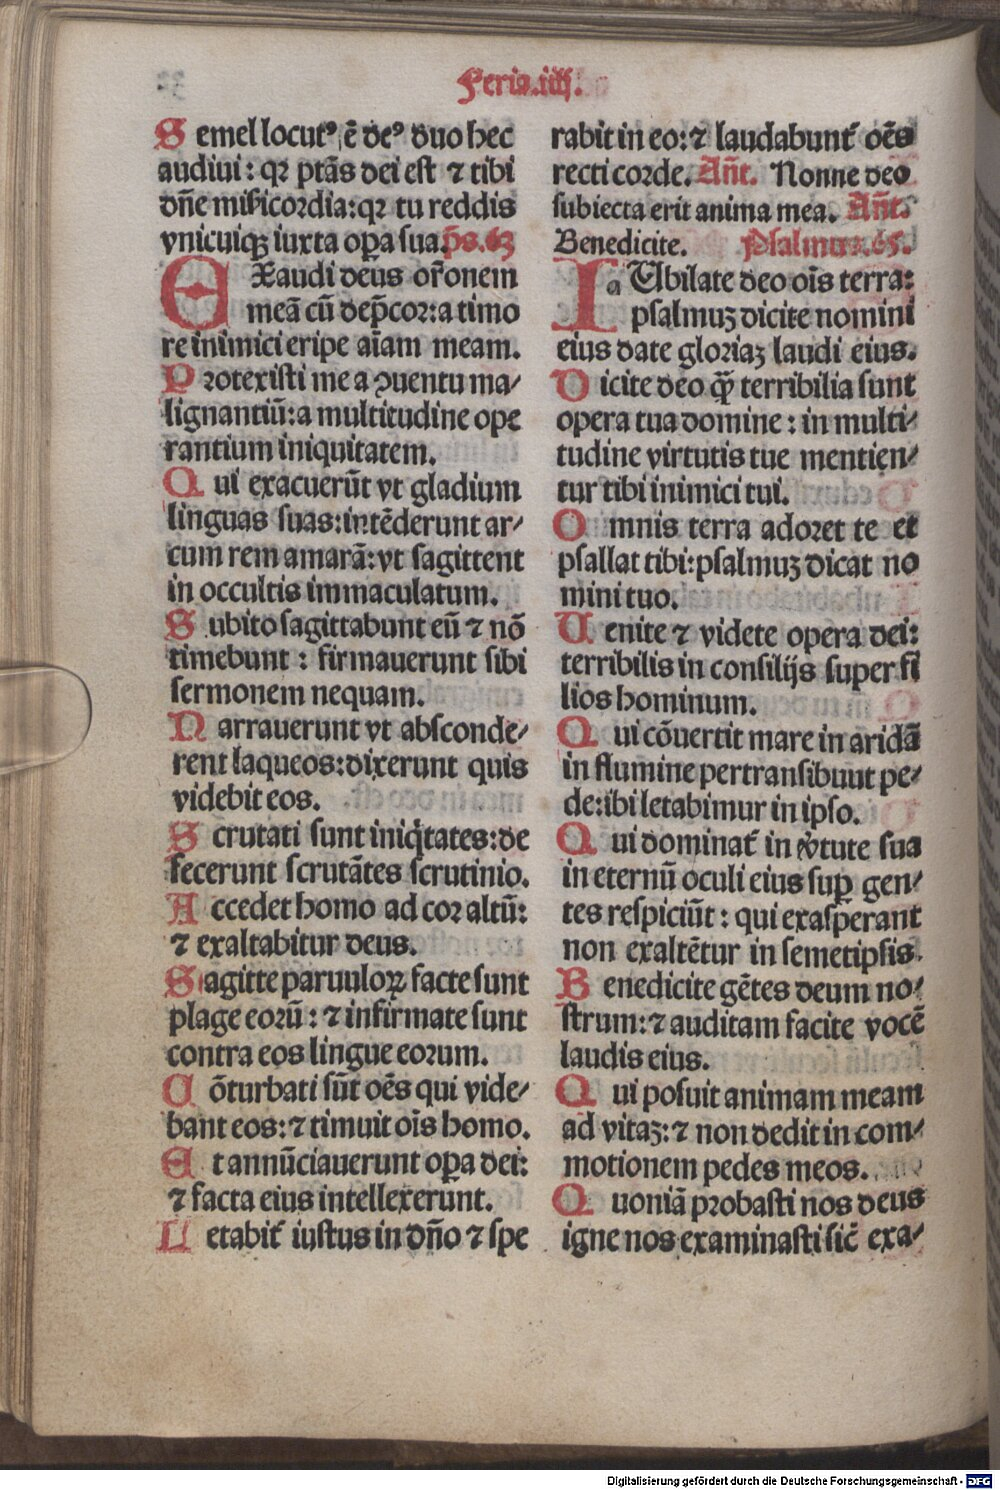 Feria.iiij.
Semel locutꝰ ē deꝰ duo hec
audiui: qꝛ ptās dei est ⁊ tibi
dñe misericordia: qꝛ tu reddis
vnicuiqꝫ iuxta oꝑa sua. p̄s.63
EXaudi deus or̄onem
meā cū dep̄cor: a timo
re inimici eripe aīam meam.
Protexisti me a ꝯuentu ma⸗
lignantiū: a multitudine ope
rantium iniquitatem.
Qui exacuerūt vt gladium
linguas suas: intēderunt ar⸗
cum rem amarā: vt sagittent
in occultis immaculatum.
Subito sagittabunt eū ⁊ nō
timebunt: firmauerunt sibi
sermonem nequam.
Narrauerunt vt absconde⸗
rent laqueos: dixerunt quis
videbit eos.
Scrutati sunt iniq̄tates: de
fecerunt scrutātes scrutinio.
Accedet homo ad cor altū:
⁊ exaltabitur deus.
Sagitte paruuloꝝ facte sunt
plage eorū: ⁊ infirmate sunt
contra eos lingue eorum.
Cōturbati sūt oēs qui vide⸗
bant eos: ⁊ timuit oīs homo.
Et annūciauerunt oꝑa dei:
⁊ facta eius intellexerunt.
Letabit̄ iustus in dño ⁊ spe
rabit in eo: ⁊ laudabunt̄ oēs
recti corde. Añt. Nonne deo
subiecta erit anima mea. Añt.
Benedicite. Psalmus.65.
IaUbilate deo oīs terra:
psalmuꝫ dicite nomini
eius date gloriaꝫ laudi eius.
Dicite deo q̄ꝫ terribilia sunt
opera tua domine: in multi⸗
tudine virtutis tue mentien⸗
tur tibi inimici tui.
Omnis terra adoret te et
psallat tibi: psalmuꝫ dicat no
mini tuo.
Uenite ⁊ videte opera dei:
terribilis in consilijs super fi
lios hominum.
Qui cōuertit mare in aridā
in flumine pertransibunt pe⸗
de: ibi letabimur in ipso.
Qui dominat̄ in v̄tute sua
in eternū oculi eius suꝑ gen⸗
tes respiciūt: qui exasperant
non exaltētur in semetipsis.
Benedicite gētes deum no⸗
strum: ⁊ auditam facite vocē
laudis eius.
Qui posuit animam meam
ad vitaꝫ: ⁊ non dedit in com⸗
motionem pedes meos.
Quoniā probasti nos deus
igne nos examinasti sic̄ exa⸗
Digitalisierung gefördert durch die Deutsche Forschungsgemeinschaft - DFG